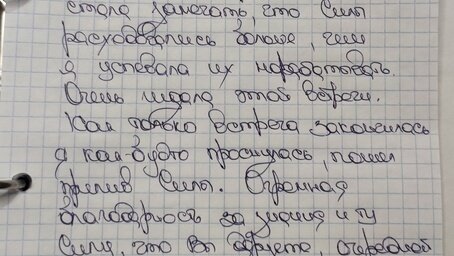 стала замечать, что Силы
расходовались больше, чем
я успевала их нарабатывать.
Очень ждала этой встречи.
Как только встреча закончилась
я как-будто проснулась, пошел
прилив Силы. Огромная
благодарность за знания и ту
Силу, что Вы даруете, очередной